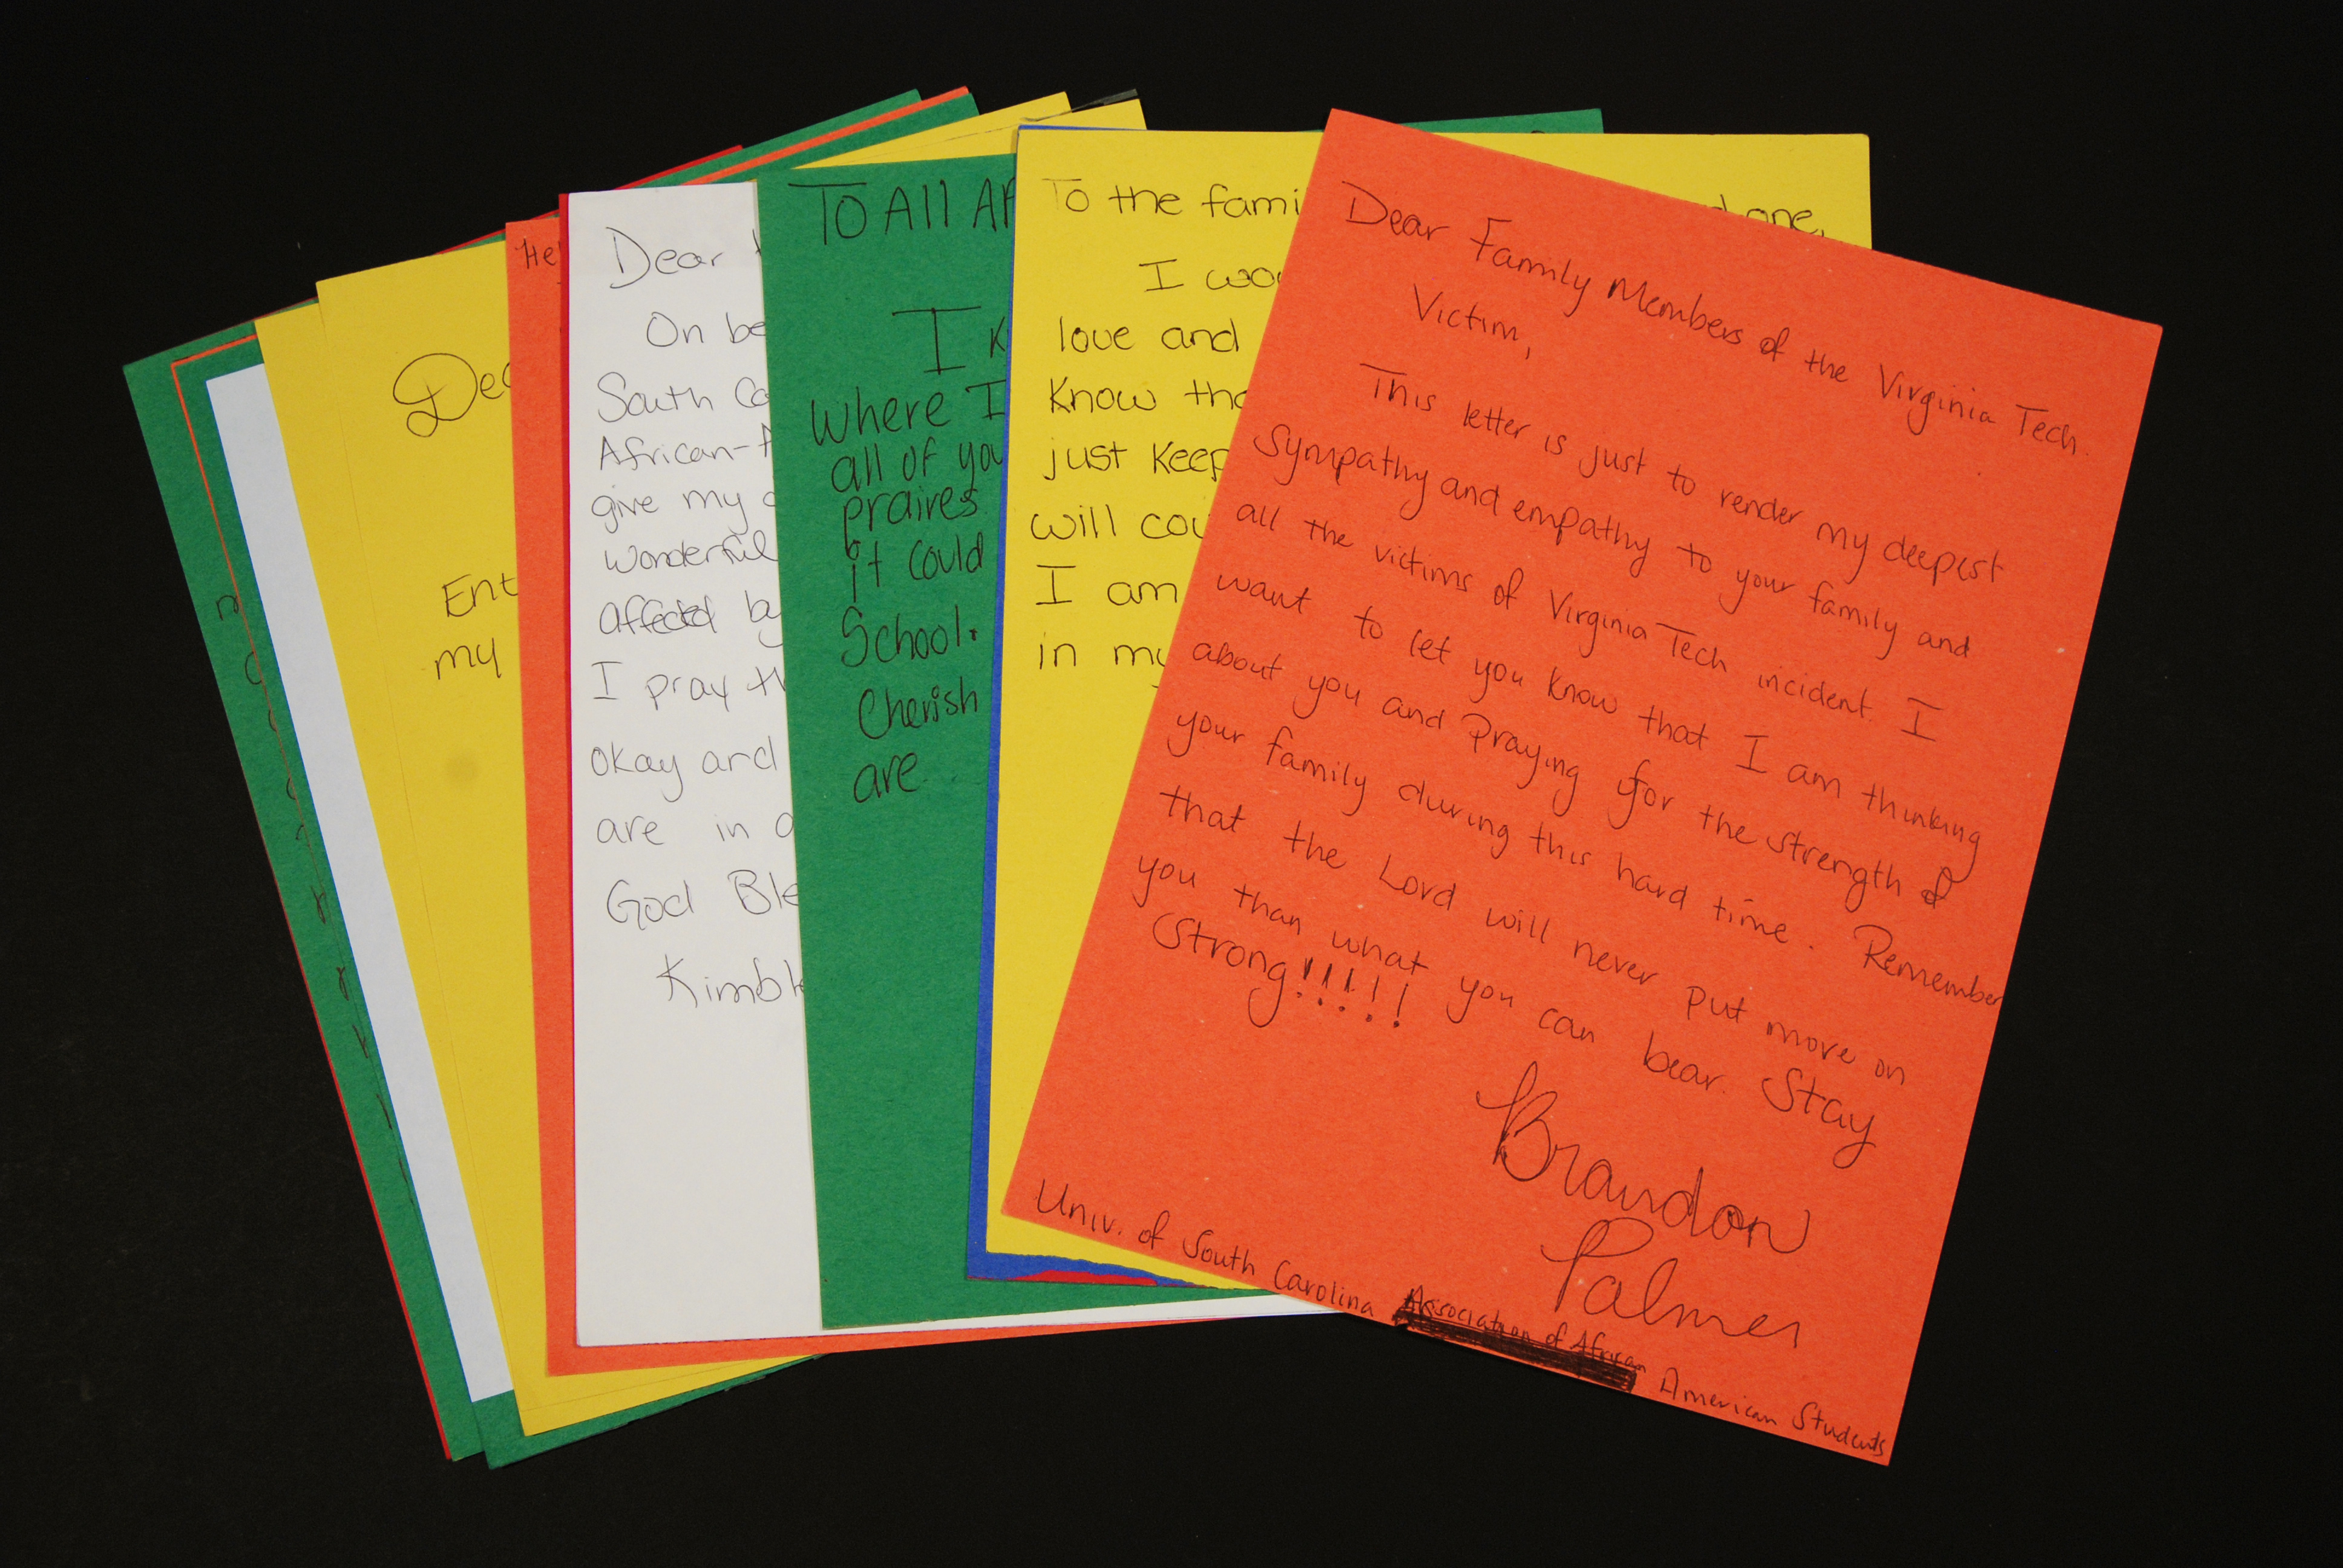 Dec
Ent
my
He
Dear
On be
South Ca
African-A
give my
wonderful
affected by
I pray th
okay and
are in
God Ble
Kimble
To All Af
I K
Where I
all of you
praires
it could
School.
Cherish
are
To the fami
one,
I wou
love and
Know tha
just keep
will cou
I am
in my
Dear Family Members of the Virginia Tech.
Victim,
This letter is just to render my deepest
Sympathy and empathy to your family and
all the victims of Virginia Tech incident. I
want to let you know that I am thinking
about you and Praying for the strength of
your family during this hard time. Remember
that the Lord will never put more on
you than what you can bear. Stay
Strong!!!!!
Brandon
Palmer
Univ. of South Carolina Association of African American Students